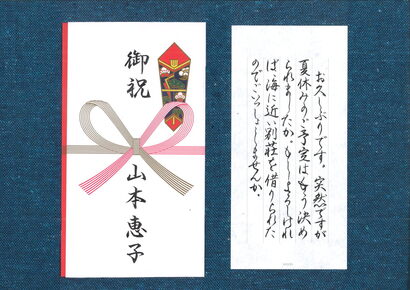 お久しぶりです。突然ですが
夏休みのご予定はもう決め
られましたか。もしよろしけれ
ば、海に近い別荘を借りられた
のでごいっしょしませんか。
御祝
山本恵子